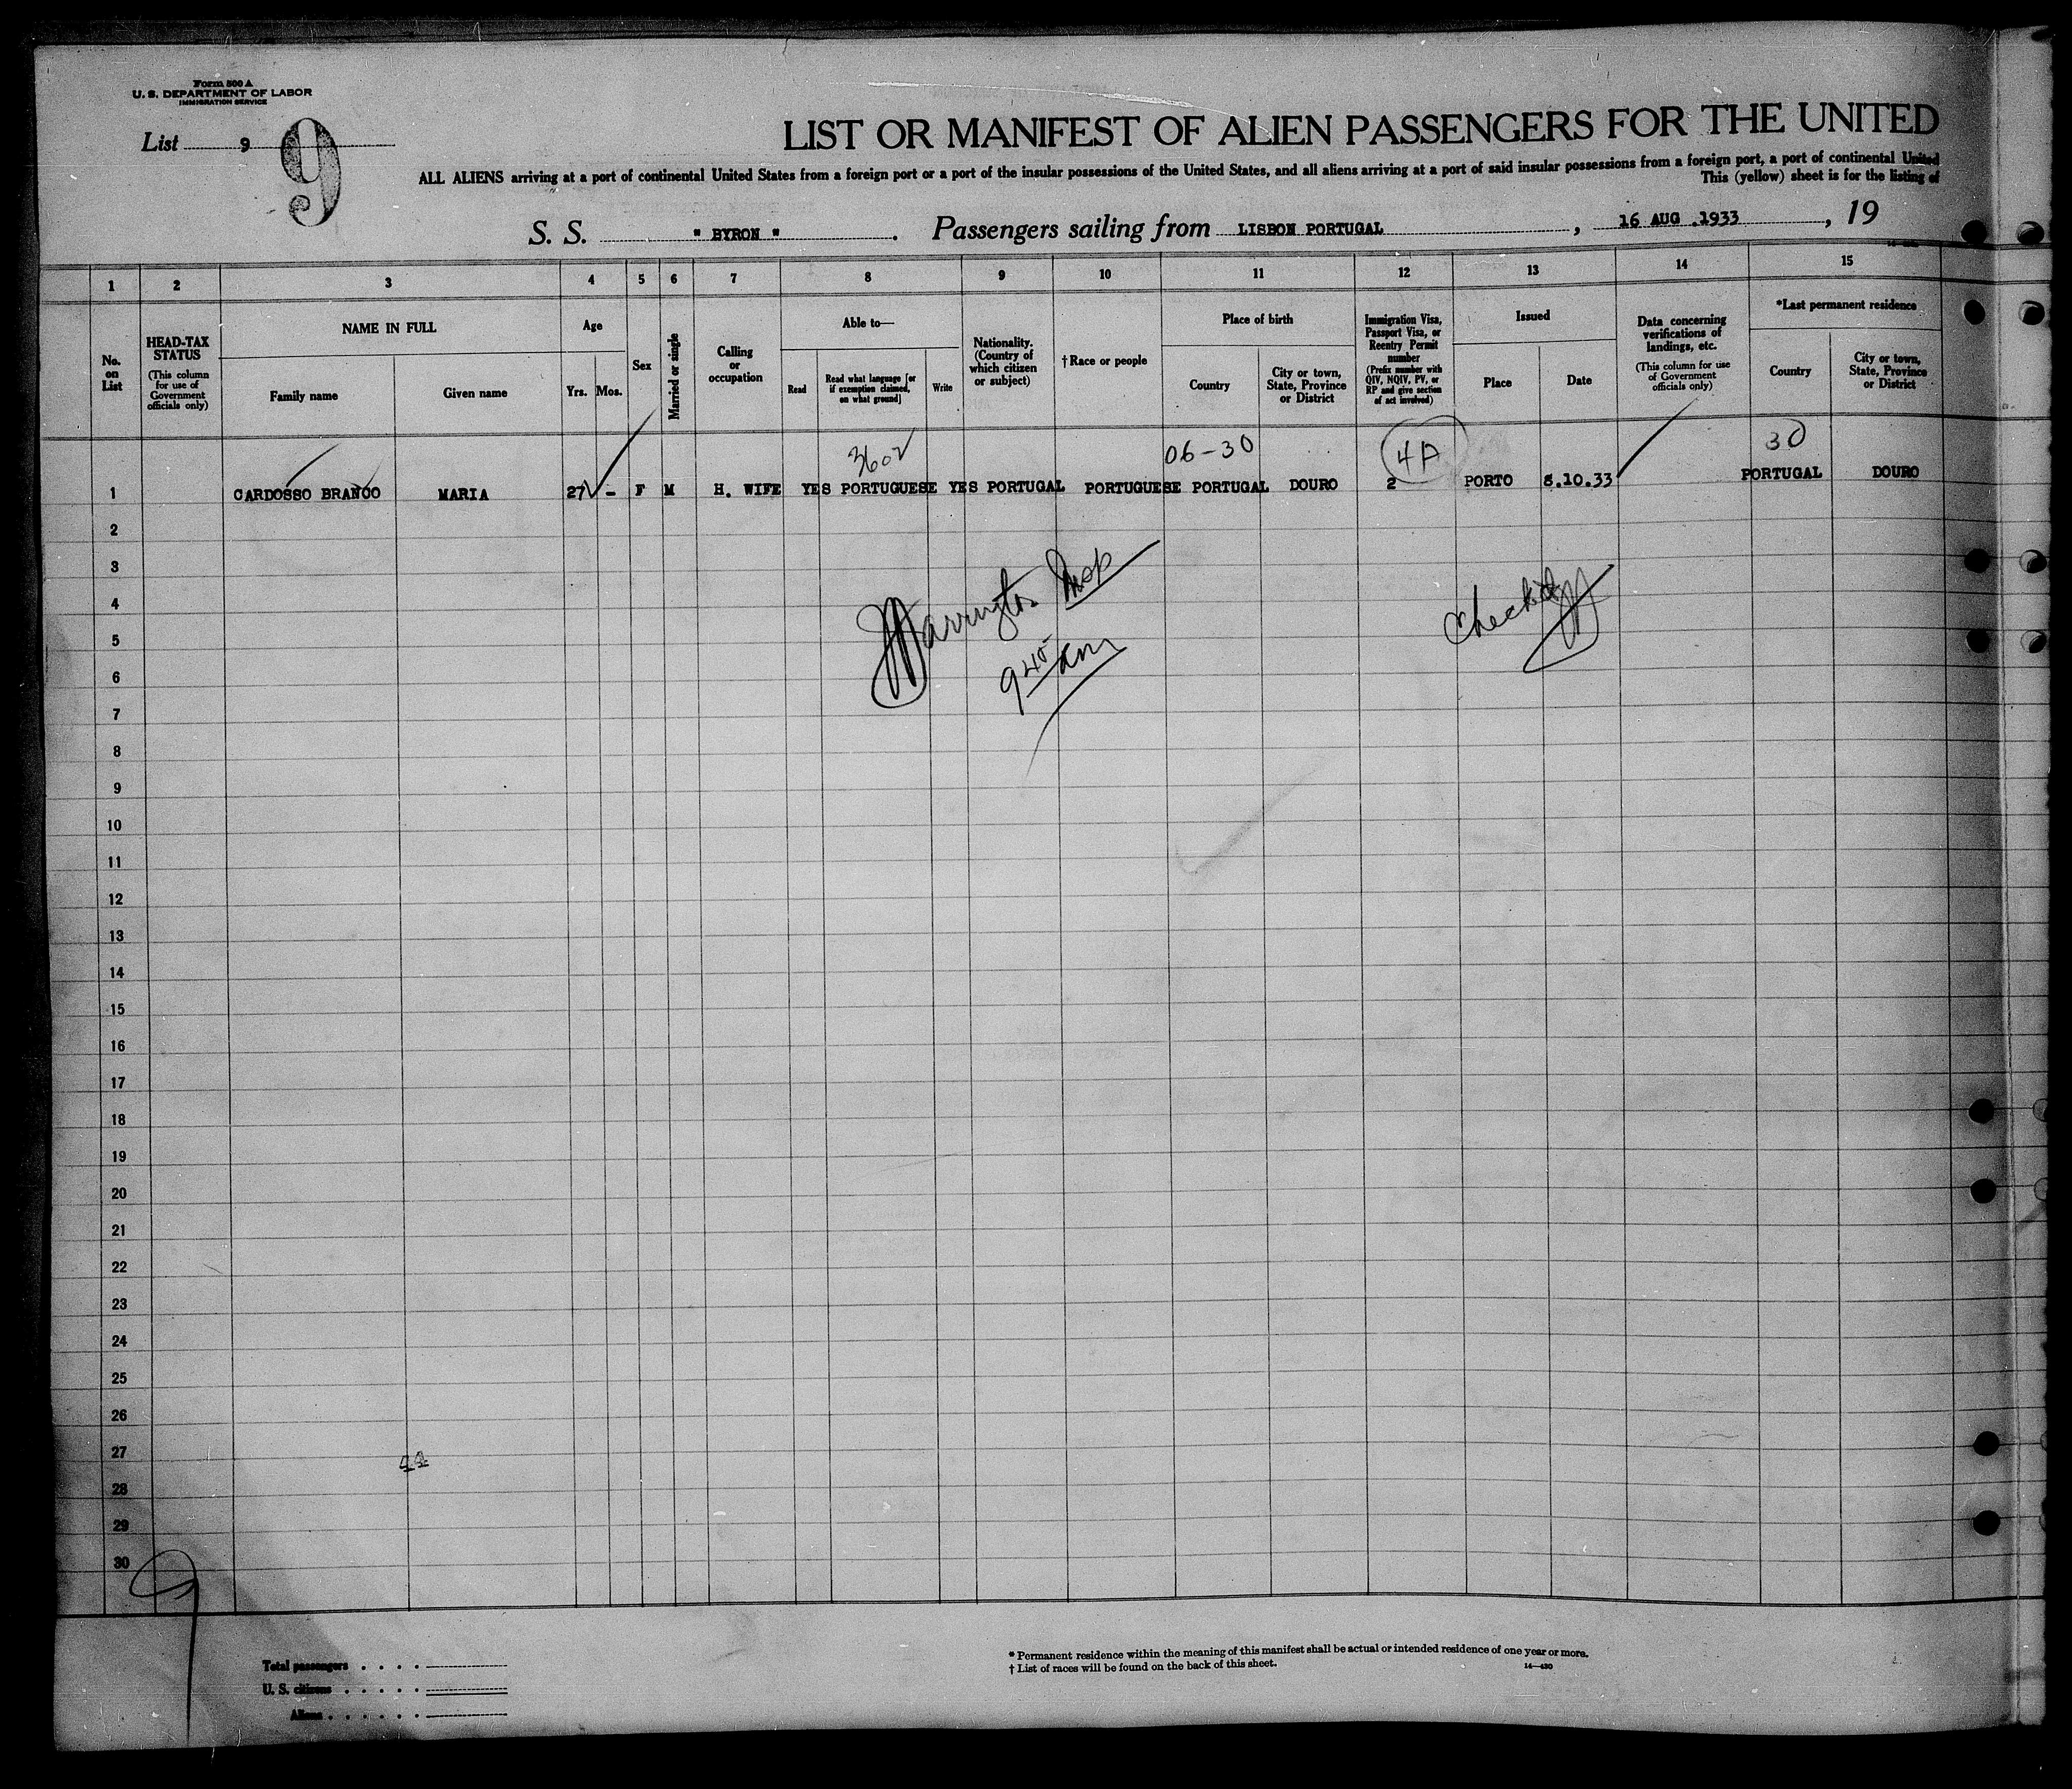 Form 500 A
U. S. DEPARTMENT OF LABOR
IMMIGRATION SERVICE
List 9
9
LIST OR MANIFEST OF ALIEN PASSENGERS FOR THE UNITED
ALL ALIENS arriving at a port of continental United States from a foreign port or a port of the insular possessions of the United States, and all aliens arriving at a port of said insular possessions from a foreign port, a port of continental United
This (yellow) sheet is for the listing of
S. S. " BYRON " . Passengers sailing from LISBON PORTUGAL , 16 AUG .1933 , 19
1 2 3 4 5 6 7 8 9 10 11 12 13 14 15
No. on List
HEAD-TAX STATUS
(This column for use of Government officials only)
NAME IN FULL
Family name
Given name
Age
Yrs. Mos.
Sex
Married or single
Calling or occupation
Able to—
Read
Read what language [or if exemption claimed, on what ground]
Write
Nationality. (Country of which citizen or subject)
†Race or people
Place of birth
Country
City or town, State, Province or District
Immigration Visa, Passport Visa, or Reentry Permit number
(Prefix number with QIV, NQIV, PV, or RP and give section of act involved)
Issued
Place
Date
Data concerning verifications of landings, etc.
(This column for use of Government officials only)
*Last permanent residence
Country
City or town, State, Province or District
3602 06-30 4A 30
1 CARDOSSO BRANCO MARIA 27 - F M H. WIFE YES PORTUGUESE YES PORTUGAL PORTUGUESE PORTUGAL DOURO 2 PORTO 8.10.33 PORTUGAL DOURO
2
3
4
5
6
7
8
9
10
11
12
13
14
15
16
17
18
19
20
21
22
23
24
25
26
27
28
29
30
Warrington Insp
9 45 am
Checked
44
9
Total passengers . . . .
U. S. citizens . . . . .
Aliens . . . . . .
* Permanent residence within the meaning of this manifest shall be actual or intended residence of one year or more.
† List of races will be found on the back of this sheet.
14—430